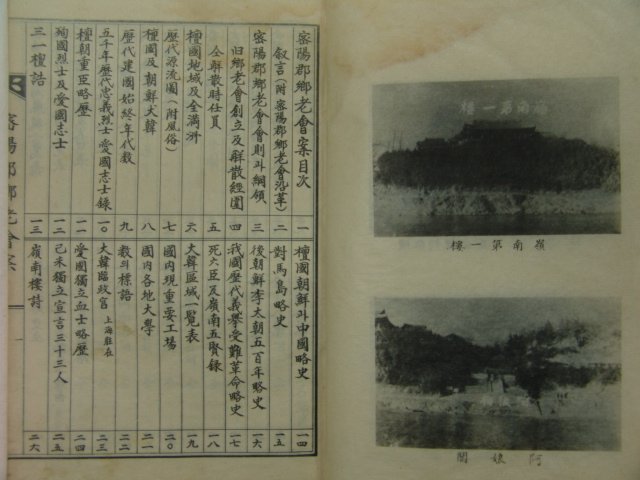 密陽郡鄕老會案目次 一
叙言(附 密陽郡鄕老會沿革) 二
密陽郡鄕老會會則斗綱領 三
旧鄕老會創立及解散經圍 四
仝解散時任員 五
檀國地域及全滿洲 六
歷代源流圖(附風俗) 七
檀國及朝鮮大韓 八
歷代建國始終年代数 九
五千年歷代忠義烈士愛國志士錄 一〇
檀朝重臣略歷 一一
殉國烈士及愛國志士 一二
三一檀誥 一三
檀國朝鮮斗中國略史 一四
對馬島略史 一五
後朝鮮李太朝五百年略史 一六
我國歷代義擧受難革命略史 一七
死六臣及嶺南五賢錄 一八
大韓區域一覧表 一九
國內現重要工場 二〇
國內各地大學 二一
敎斗標語 二二
大韓臨政官 上海駐在 二三
愛國獨立血士略歷 二四
己未獨立宣言三十三人 二五
嶺南樓詩 二六
密陽郡鄕老會案
一
樓一第南嶺
樓一第南嶺
閣娘阿